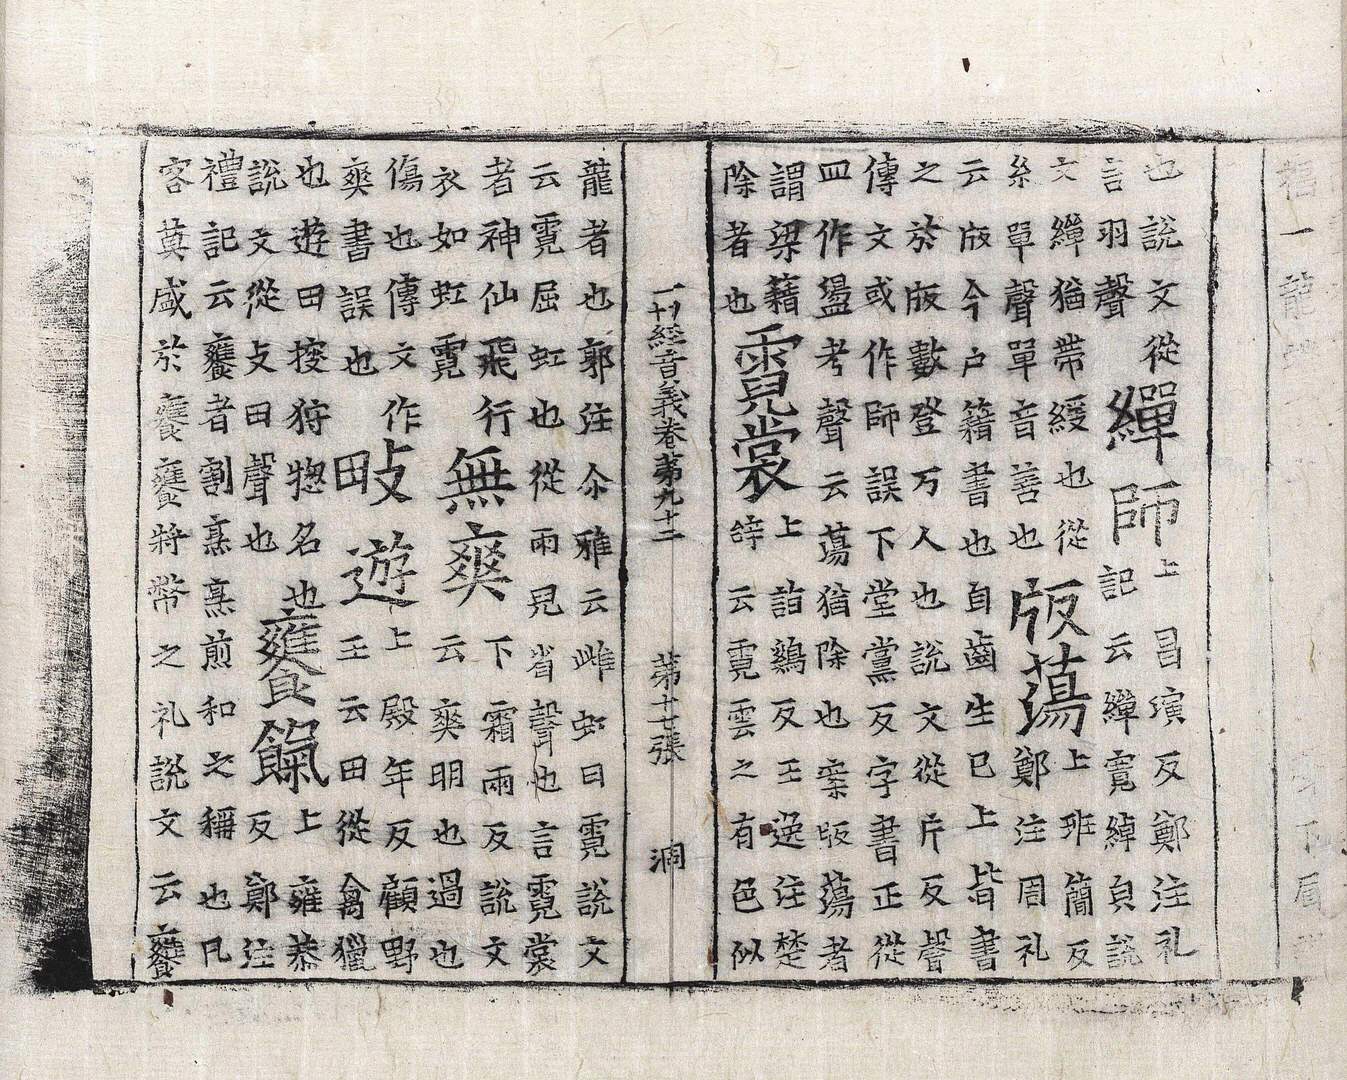 也説文從
言羽聲
繟師
上昌演反鄭注礼
記云繟寛綽皃説
文繟猶帶綬也從
糸單聲單音善也
版蕩
上班簡反
鄭注周礼
云版今户籍書也自齒生已上皆書
之於版數登万人也説文從片反聲
傳文或作師誤下堂黨反字書正從
皿作盪考聲云蕩猶除也案版蕩者
謂梁籍
除者也
霓裳
上詣鷄反王逸注楚
辝云霓雲之有色似
一切經音義卷第九十二 第十七張 洞
龍者也郭注尒雅云雌虹曰霓説文
云霓屈虹也從雨皃省聲也言霓裳
者神仙飛行
衣如虹霓
無爽
下霜兩反説文
云爽明也過也
傷也傳文作
爽書誤也
畋遊
上殿年反顧野
王云田從禽獵
也遊田狩惣名也
説文從攴田聲也
饔餼
上雍恭
反鄭注
禮記云饔者割烹烹煎和之稱也凡
客莫盛於饔饔將幣之礼説文云饔